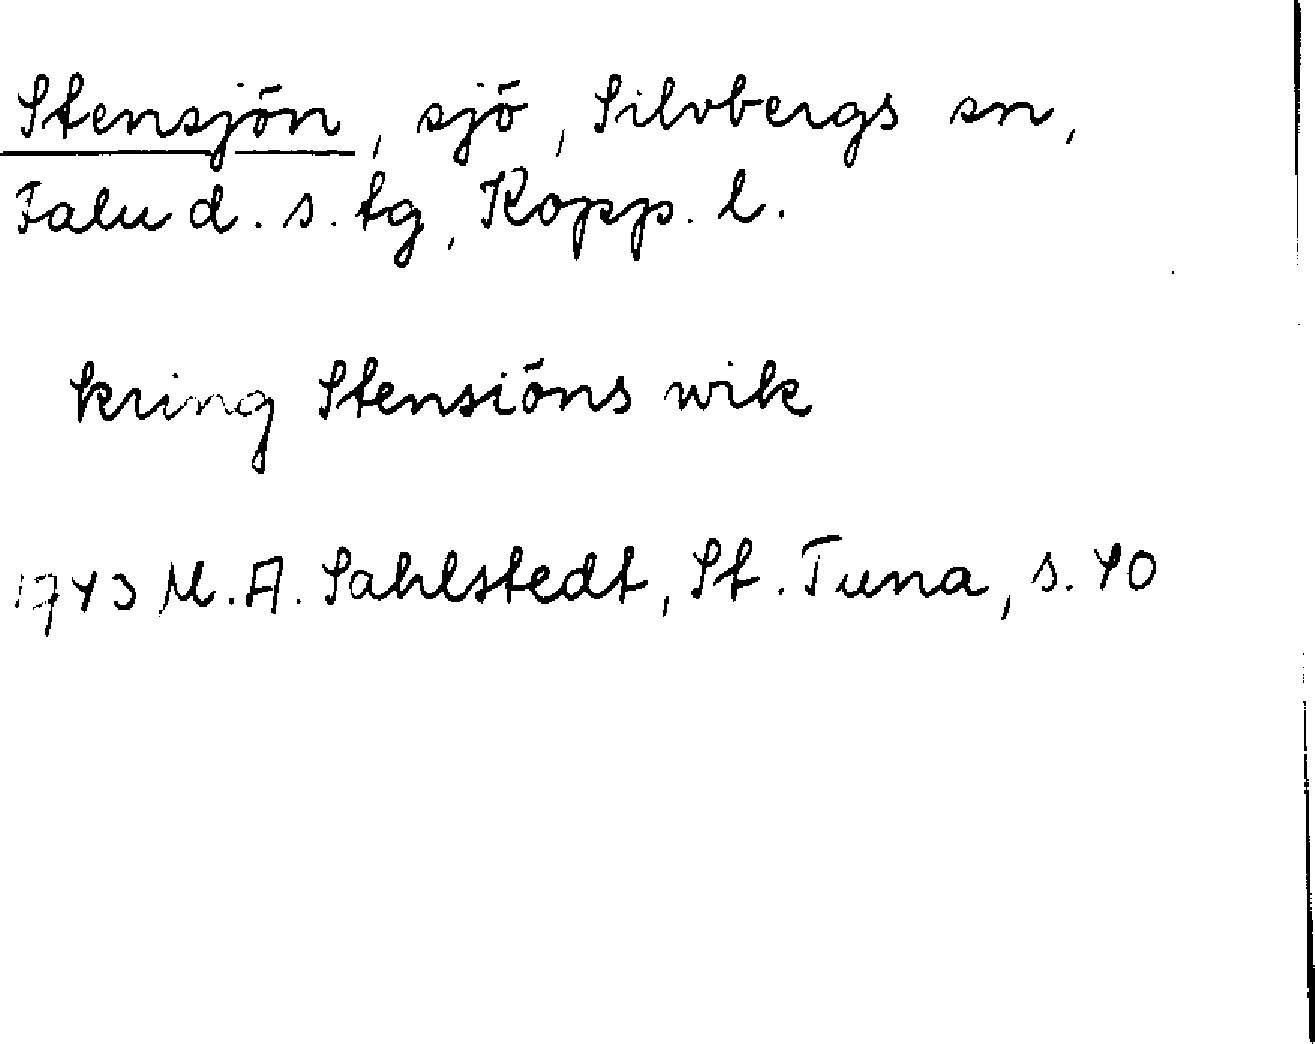 Stensjön, sjö, Silvbergs sn,
Falu d. s. tg, Kopp. l.
kring Stensiöns wik
1743 M. A. Sahlstedt, St. Tuna, s. 40